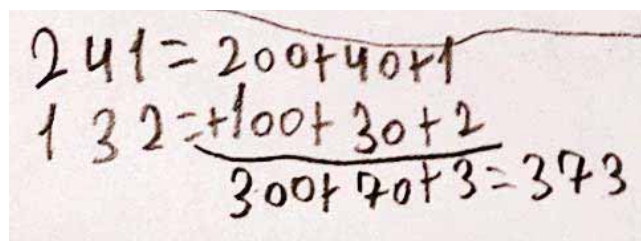 241=200+40+1
132=+100+30+2
300+70+3=373